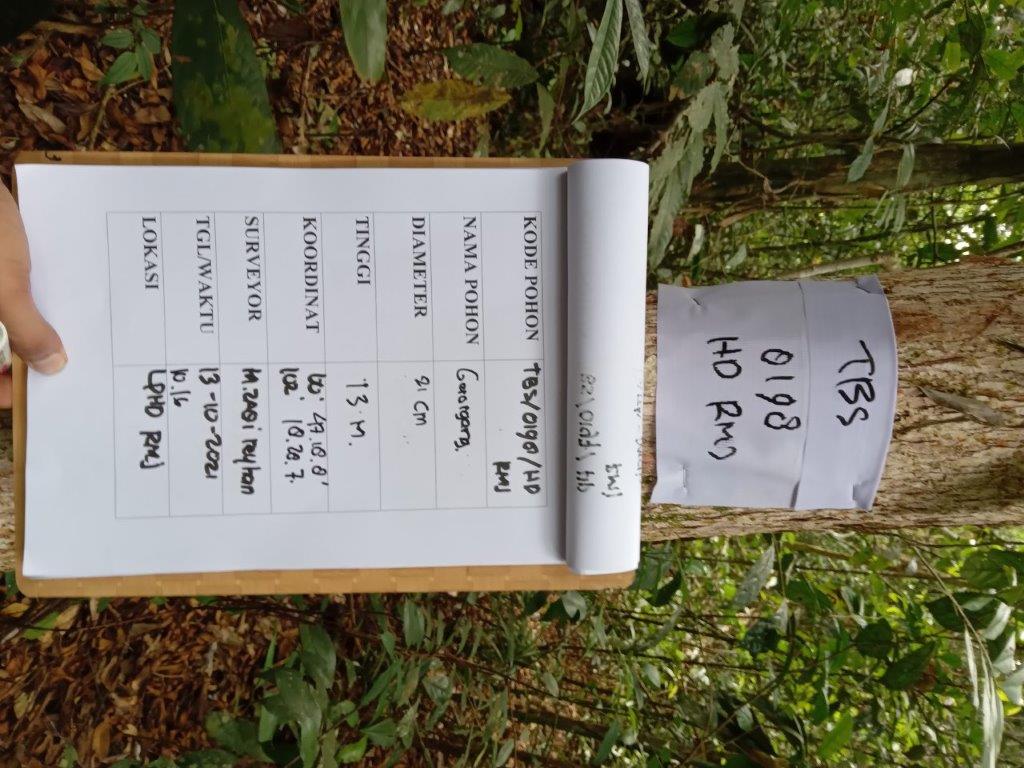 TBS
0198
HD RMJ
KODE POHON TBS/0198/HD
RMJ
NAMA POHON Geronggang.
DIAMETER 21 cm
TINGGI 13 M.
KOORDINAT 00° 47.18.8'
102° 18.28.7.
SURVEYOR M.ZAQi reyhan
TGL/WAKTU 13-10-2021
10.16
LOKASI LPHD RMJ